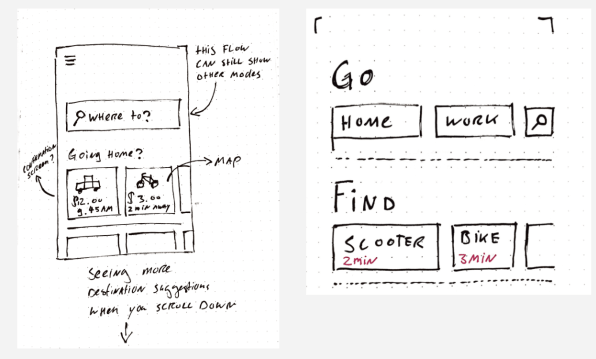 THIS FLOW
CAN STILL SHOW
OTHER MODES
Where to?
Going Home?
CONFIRMATION
SCREEN?
MAP
$12.00
9.45AM
$3.00
2 min away
Seeing more
Destination suggestions
when you SCROLL DOWN
Go
HOME
WORK
FIND
SCOOTER
2MIN
BIKE
3MIN